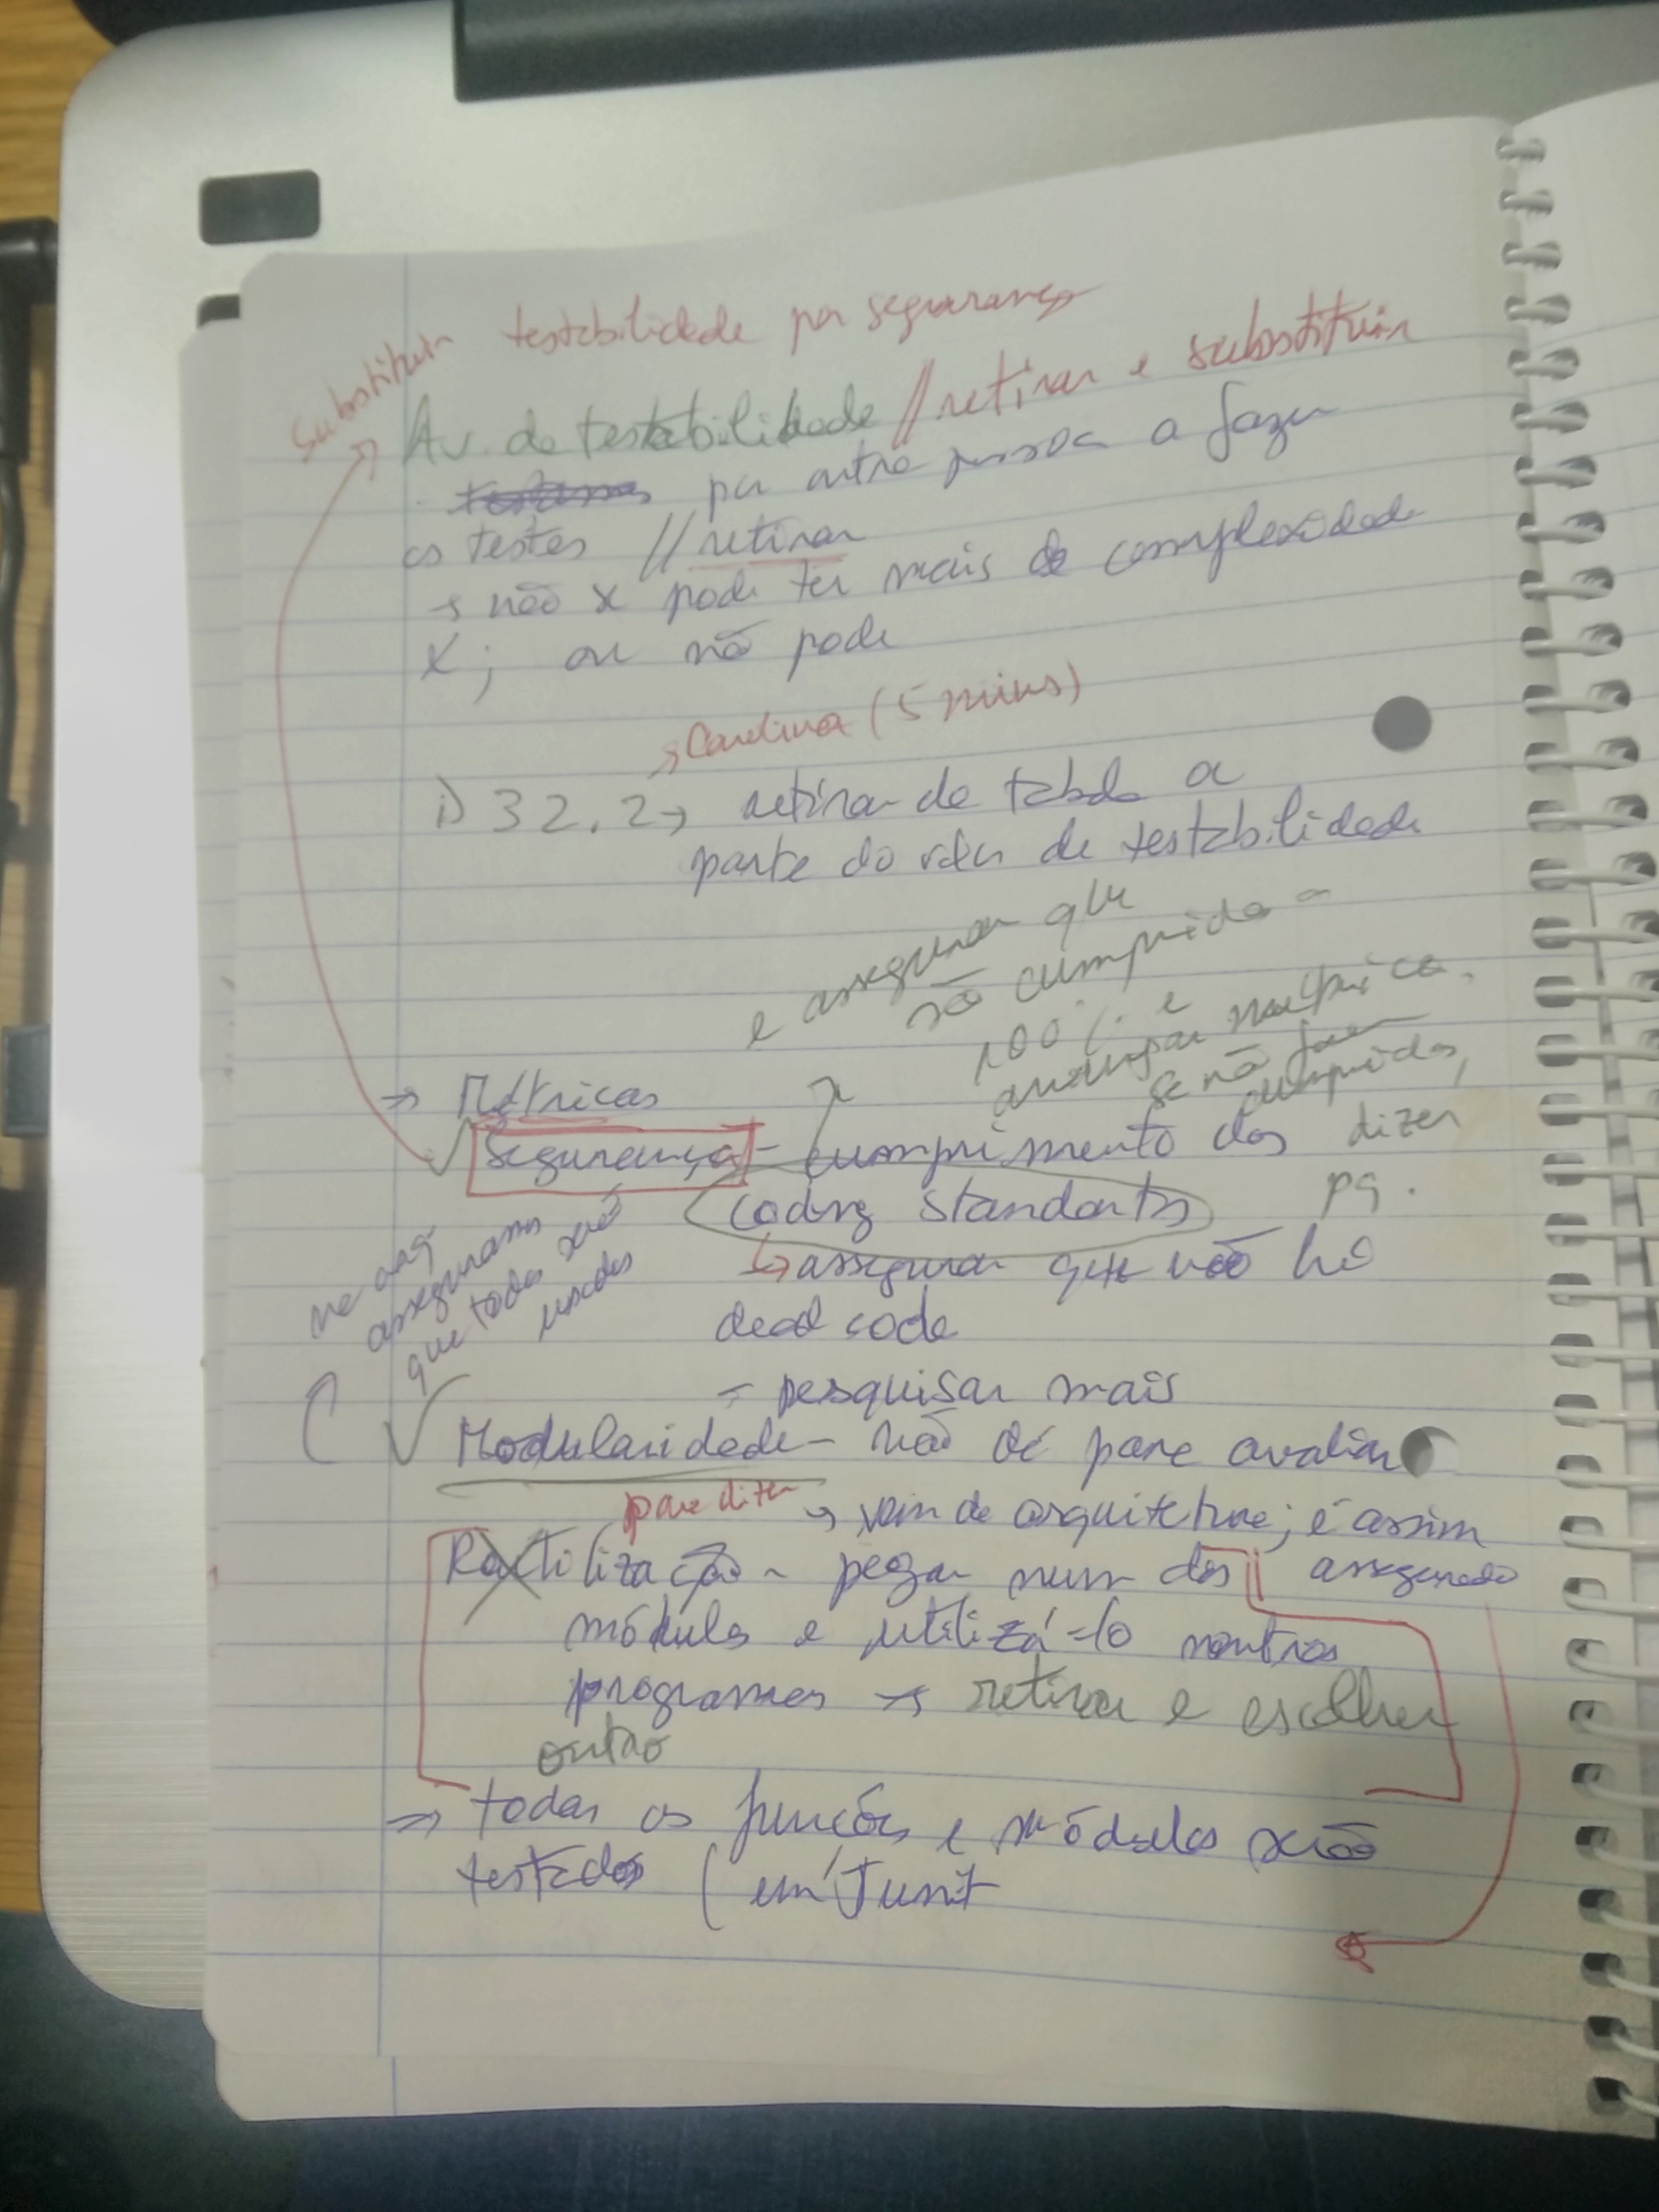 Substituir testabilidade por segurança
Av. de testabilidade // retirar e substituir
por outra pessoa a fazer
os testes // retirar
→ não x pode ter mais de complexidade
x; ou não pode
→ Carolina (5 mins)
i) 3 2. 2 → retirar da tabela a
parte do valor de testabilidade
e assegurar que
são cumpridos a
100% e
arranjar métrica.
se não forem
cumpridos,
dizer
pq.
→ Métricas
✓ Segurança - cumprimento dos
coding standarts
↳ assegurar que não há
dead code
- pesquisar mais
na arq
asseguramos
que todos são
usados
✓ Modularidade - não dá para avaliar
para dizer → vem da arquitetura; é assim
assegurado
Reutilização - pegar num dos
módulos e utilizá-lo noutros
programas → retirar e escolher
outro
⇒ todas as funções e módulos são
testados (em Junit